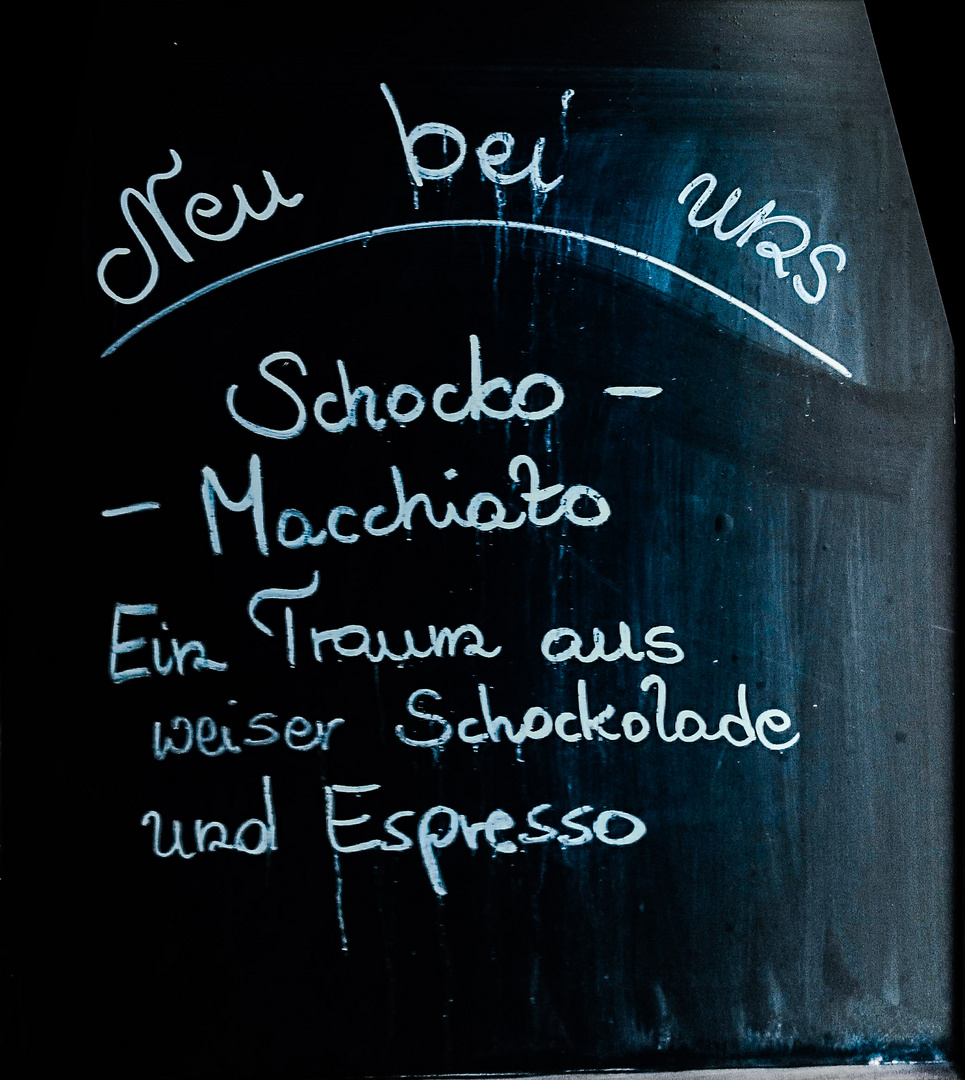 Neu bei uns
Schocko -
- Macchiato
Ein Traum aus
weiser Schockolade
und Espresso